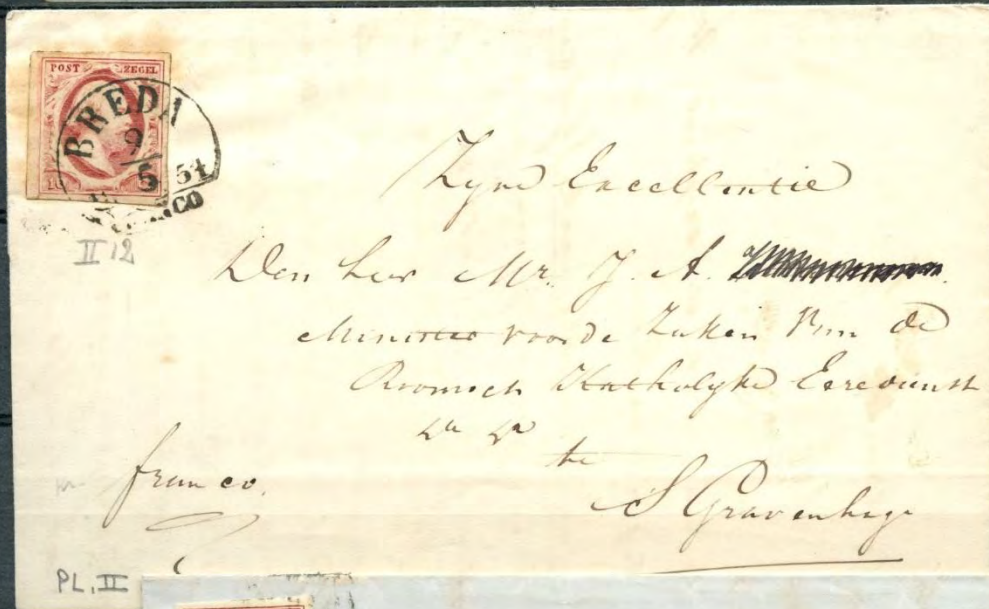 POST ZEGEL
BREDA
9/5 54
FRANCO
II 12
Zyne Excellentie
Den heer Mr. J. A.
Minister voor de Zaken van de
Roomsch Katholyke Eeredienst
te
S Gravenhage
franco.
PL. II